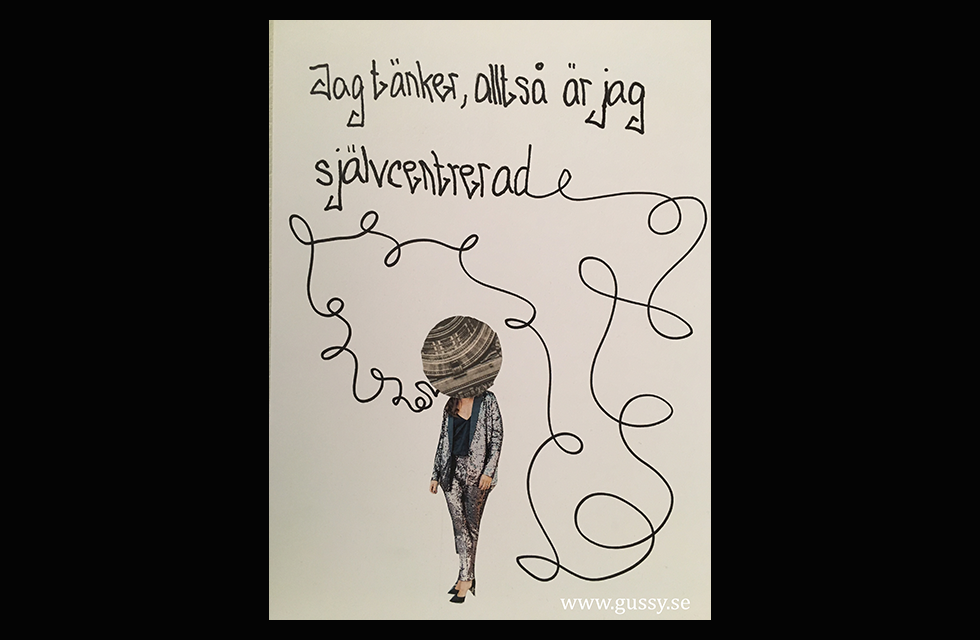 Jag tänker, alltså är jag
självcentrerad
www.gussy.se